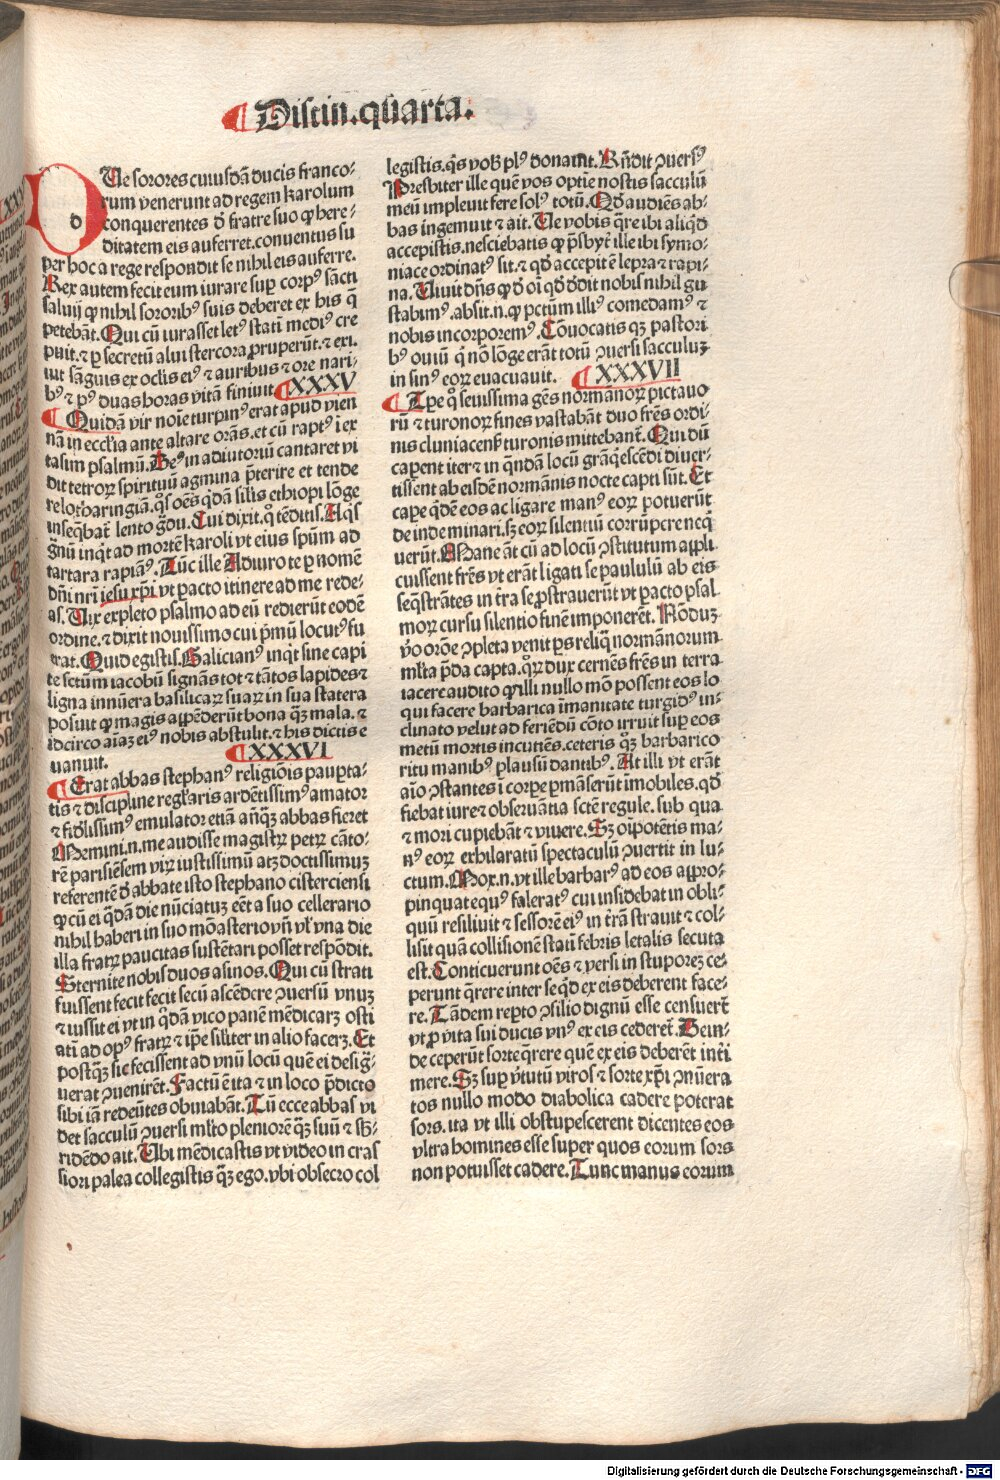 Distin.quarta.
d Ue sorores cuiusdã ducis franco-
rum venerunt ad regem karolum
conquerentes đ fratre suo ꝙ here-
ditatem eis auferret.conuentus su
per hoc a rege respondit se nihil eis auferre.
Rex autem fecit eum iurare suꝑ corpꝰ sãcti
saluij ꝙ nihil sororibꝰ suis deberet ex his q̃
petebãt.Qui cũ iurasset letꝰ stati mediꝰ cre
puit.⁊ ꝑ secretũ alui stercora ꝓruperũt.⁊ exi.
iut sãguis ex oclis eiꝰ ⁊ auribus ⁊ ore nari-
bꝰ ⁊ pꝰ duas horas vitã finiuit XXXV
Quidã vir noĩe turpinꝰ erat apud vien
nã in eccl̃ia ante altare orãs.et cũ raptꝰ i ex
tasim psalmũ.Deꝰ in adiutoriũ cantaret vi
dit tetroꝝ spirituũ agmina p̃terire et tende
re lotharingiã.q̃s oẽs q̃dã silis ethiopi lõge
inseq̃bat᷑ lento g̃du.Cui dixit.q̊ tẽditis.Aq̃s
g̃nũ inq̃t ad mortẽ karoli vt eius sp̃um ad
tartara rapiaꝰ.Tũc ille Adiuro te ꝑ nomẽ
dñi nr̃i iesu xp̃i vt pacto itinere ad me rede-
as.Uix expleto psalmo ad eũ redierũt eodẽ
ordine.⁊ dixit nouissimo cui p̃mũ locutꝰ fu
erat.Quid egistis.Galicianꝰ inq̃t sine capi
te sctũm iacobũ signãs tot ⁊ tãtos lapides ⁊
ligna innũera basilicaꝝ suaꝝ in sua statera
posuit ꝙ magis appẽderũt bona q̃ꝫ mala.⁊
idcirco aĩaꝫ eiꝰ nobis abstulit.⁊ his dictis e
uanuit. XXXVI
Erat abbas stephanꝰ religiõis pauꝑta-
tis ⁊ discipline regl̃aris ardẽtissimꝰ amator
⁊ fidl̃issimꝰ emulator etiã añq̃ꝫ abbas fieret
Memini.n.me audisse magistꝝ petꝝ cãto-
rẽ parisiẽsem viꝝ iustissimũ atꝫ doctissimuꝫ
referentẽ đ abbate isto stephano cisterciensi
ꝙ cũ ei q̃dã die nũciatuꝫ eẽt a suo cellerario
nihil haberi in suo mõasterio vñ vl̃ vna die
illa fratꝝ paucitas sustẽtari posset respõdit.
Sternite nobis duos asinos.Qui cũ strati
fuissent fecit fecit secũ ascẽdere ꝯuersũ vnuꝫ
⁊ iussit ei vt in q̃dã vico panẽ mẽdicaꝝ osti
atĩ ad opꝰ fratꝝ ⁊ ip̃e sil̃iter in alio facerꝫ.Et
postq̃ꝫ sic fecissent ad vnũ locũ quẽ ei desig̃-
uerat ꝯuenirẽt.Factũ ẽ ita ⁊ in loco p̃dicto
sibi iã redeũtes obuiabãt.Tũ ecce abbas vi
det sacculũ ꝯuersi ml̃to pleniorẽ q̃ꝫ suũ ⁊ sb̃-
ridẽdo ait.Ubi mẽdicastis vt video in cras
siori palea collegistis q̃ꝫ ego.vbi obsecro col
legistis.q̃s vob̃ plꝰ donauit.Rñdit ꝯuersꝰ
Presbiter ille quẽ vos optĩe nostis sacculũ
meũ impleuit fere solꝰ totũ.Qđ audiẽs ab-
bas ingemuit ⁊ ait.Ue vobis q̃re ibi aliq̃d
accepistis.nesciebatis ꝙ p̃sbyt᷑ ille ibi symo-
niace ordinatꝰ sit.⁊ qđ accepit ẽ lepra ⁊ rapi-
na.Uiuit dñs ꝙ đ oĩ qđ đdit nobis nihil gu
stabimꝰ.absit.n.ꝙ pctũm illiꝰ comedamꝰ ⁊
nobis incorporemꝰ.Cõuocatis qꝫ pastori
bꝰ ouiũ q̃ nõ lõge erãt totũ ꝯuersi sacculuꝫ
in sinꝰ eoꝝ euacuauit. XXXVII
Tp̃e q̊ seuissima gẽs normãnoꝝ pictauo
rũ ⁊ turonoꝝ fines vastabãt duo fr̃es ordi-
nis cluniaceñ turonis mittebant᷑.Qui dũ
capent iter ⁊ in q̃ndã locũ grã q̃escẽdi diuer-
tissent ab eisdẽ normãnis nocte capti sũt.Et
caꝑe q̃dẽ eos ac ligare manꝰ eoꝝ potuerũt
deinde minari.sꝫ eoꝝ silentiũ corrũpere neq̃
uerũt.Mane ãt cũ ad locũ ꝯstitutum appli
cuissent fr̃es vt erãt ligati se paululũ ab eis
seq̃strãtes in t̃ra se ꝓstrauerũt vt pacto psal
moꝝ cursu silentio finẽ imponerẽt.Nõduꝫ
ṽo orõe ꝯpleta venit ꝑs reliq̃ normãnorum
ml̃ta p̃da capta.qꝝ dux cernẽs fr̃es in terra
iacere audito ꝙ illi nullo mõ possent eos lo
qui facere barbarica imanitate turgidꝰ in-
clinato velut ad feriẽdũ cõto irruit suꝑ eos
metũ mortis incutiẽs.ceteris q̃ꝫ barbarico
ritu manibꝰ plausũ dantibꝰ.At illi vt erãt
aĩo ꝯstantes i corꝑe ꝑmãserũt imobiles.qđ
fiebat iure ⁊ obseruãtia sctẽ regule.sub qua
⁊ mori cupiebãt ⁊ viuere.Sꝫ oĩpotẽtis ma-
nꝰ eoꝝ exhilaratũ spectaculũ ꝯuertit in lu-
ctum.Mox.n.vt ille barbarꝰ ad eos appro-
pinquat equꝰ faleratꝰ cui insidebat in obli-
quũ resiliuit ⁊ sessorẽ eiꝰ in t̃rã strauit ⁊ col-
lisit quã collisionẽ stati febris letalis secuta
est.Conticuerunt oẽs ⁊ versi in stuporeꝫ ce-
perunt q̃rere inter se qđ ex eis deberent face-
re.Tãdem reꝑto ꝯsilio dignũ esse censuer̃t
vt ꝓ vita sui ducis vnꝰ ex eis cederet᷑.Dein-
de ceperũt sorte q̃rere quẽ ex eis deberẽt inti
mere.Sꝫ suꝑ ṽtutũ viros ⁊ sorte xp̃i ꝯnũera
tos nullo modo diabolica cadere poterat
sors.ita vt illi obstupescerent dicentes eos
vltra homines esse super quos eorum sors
non potuisset cadere.Tunc manus eorum
Digitalisierung gefördert durch die Deutsche Forschungsgemeinschaft - DFG